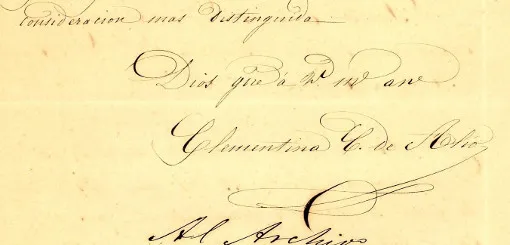 consideracion mas distinguida.
Dios gue á V. m.s an.s
Clementina C. de
Al Archivo